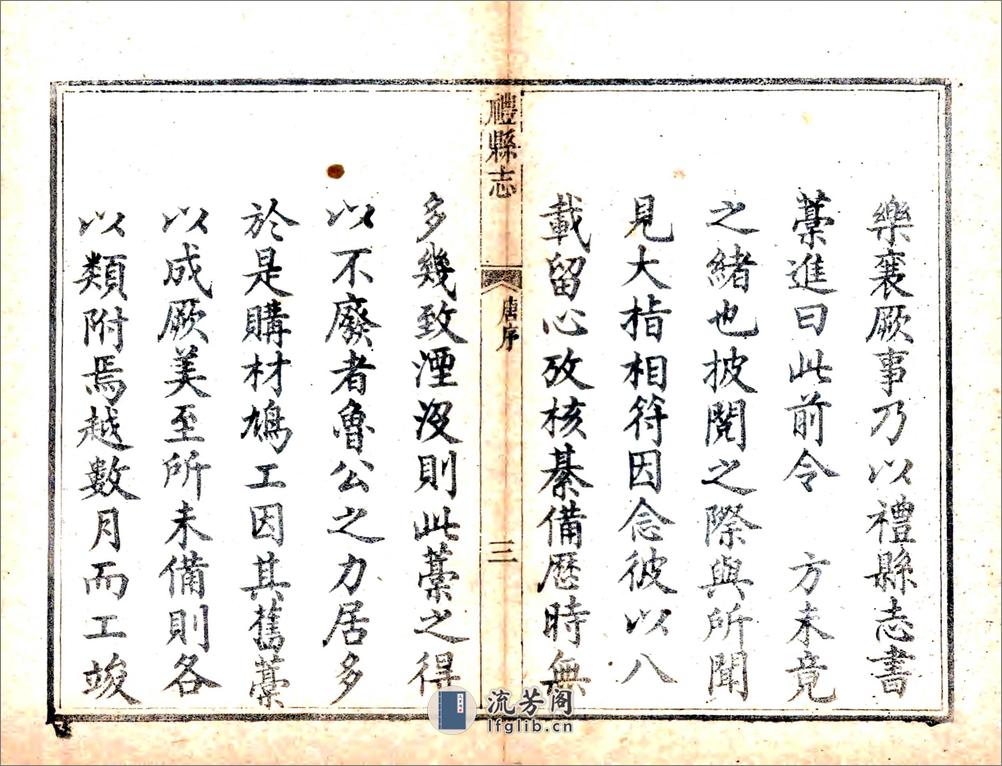 樂襄厥事乃以禮縣志書
藁進曰此前令 方未竟
之緒也披閱之際與所聞
見大指相符因念彼以八
載留心攷核綦備歷時無
禮縣志
唐序
三
多幾致湮沒則此藁之得
以不廢者魯公之力居多
於是購材鳩工因其舊藁
以成厥美至所未備則各
以類附焉越數月而工竣
流芳阁
lfglib.cn